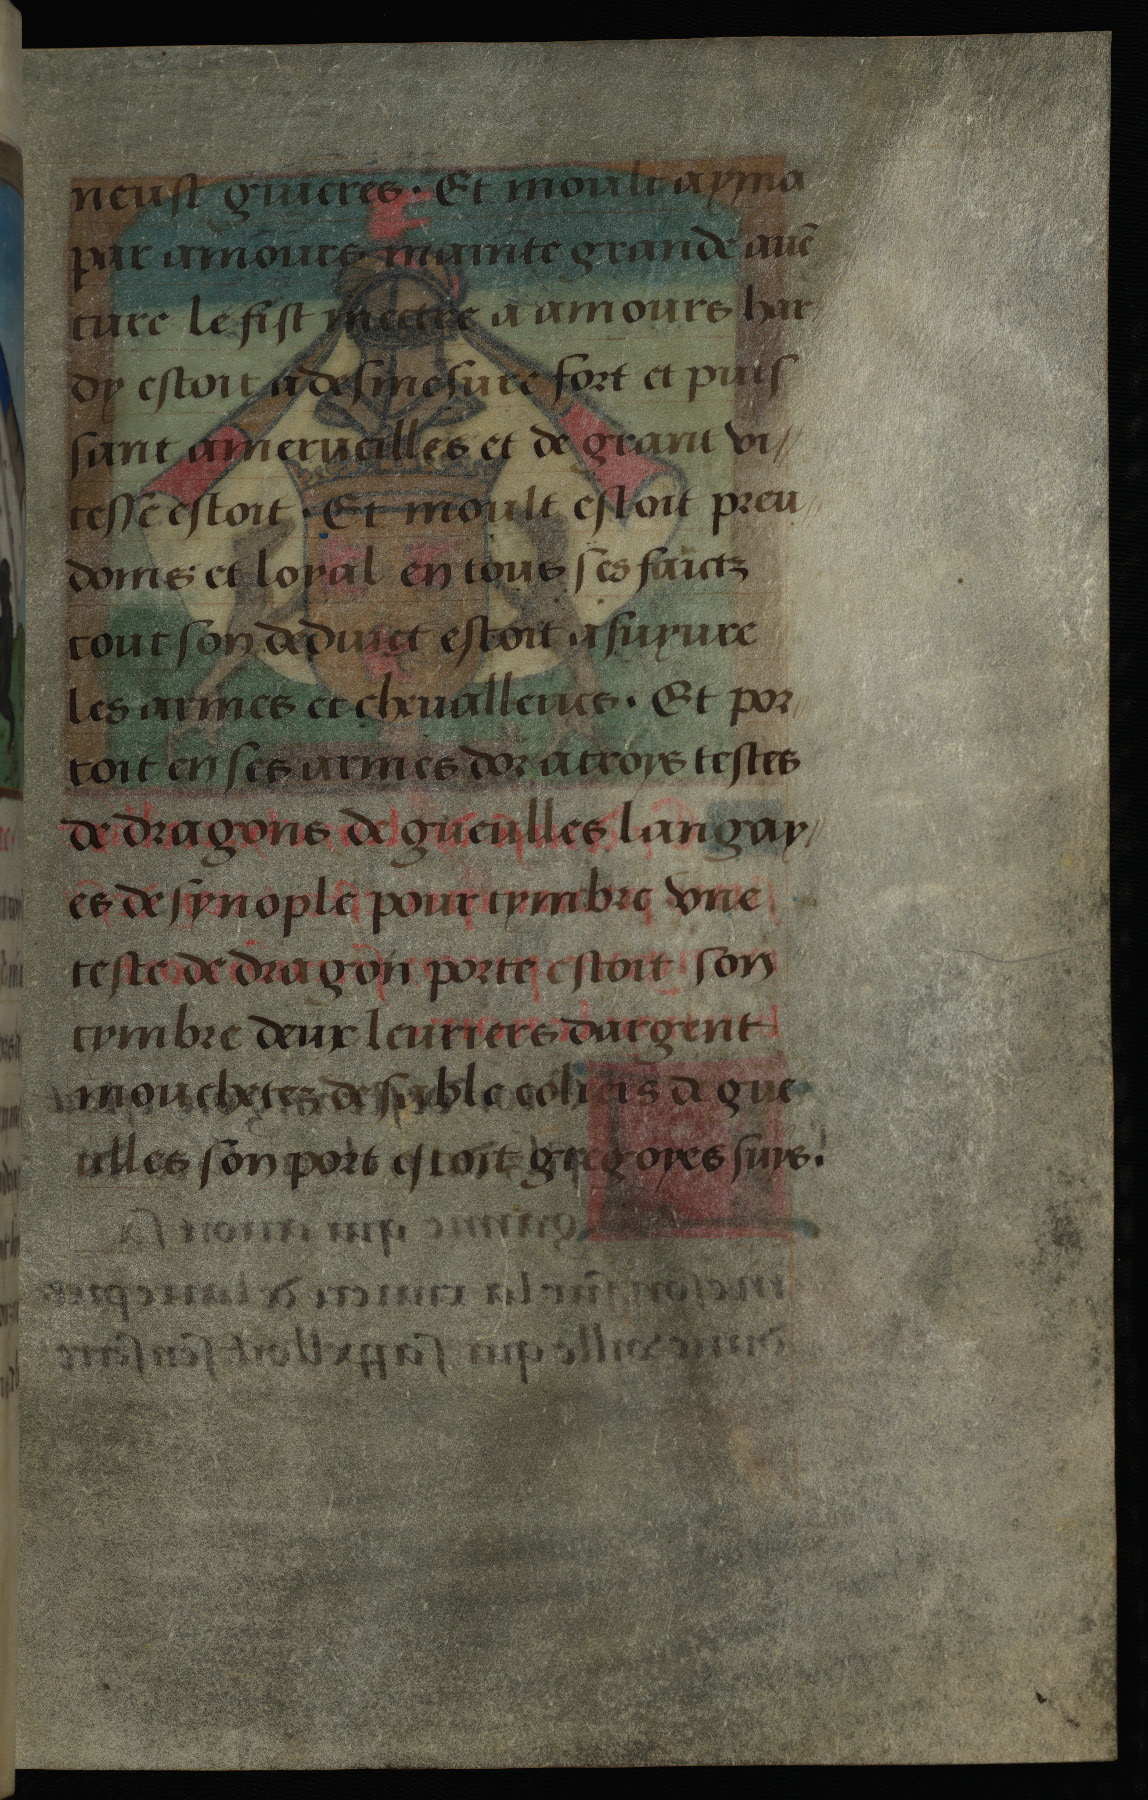 neust guieres · Et moult ayma
par amours mainte grande auẽ
ture le fist mectre a amours har/
dy estoit a desmesure fort et puis
sant amerueilles et de grant vi//
tesse estoit · Et moult estoit preu/
doms et loyal en tous ses faictz
tout son deduict estoit a suyure
les armes et cheualleries · Et por/
toit en ses armes dor a troys testes
de dragons de gueulles langay//
es de synople pour tymbre vne
teste de dragon porte estoit son
tymbre deux leuriers dargent
mouchetez de sable coliers de gue
ulles son port estoit gregoyes suys.